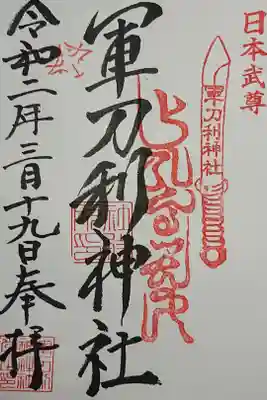 日本武尊
軍刀利神社
軍刀利神社
令和二年三月十九日奉拝